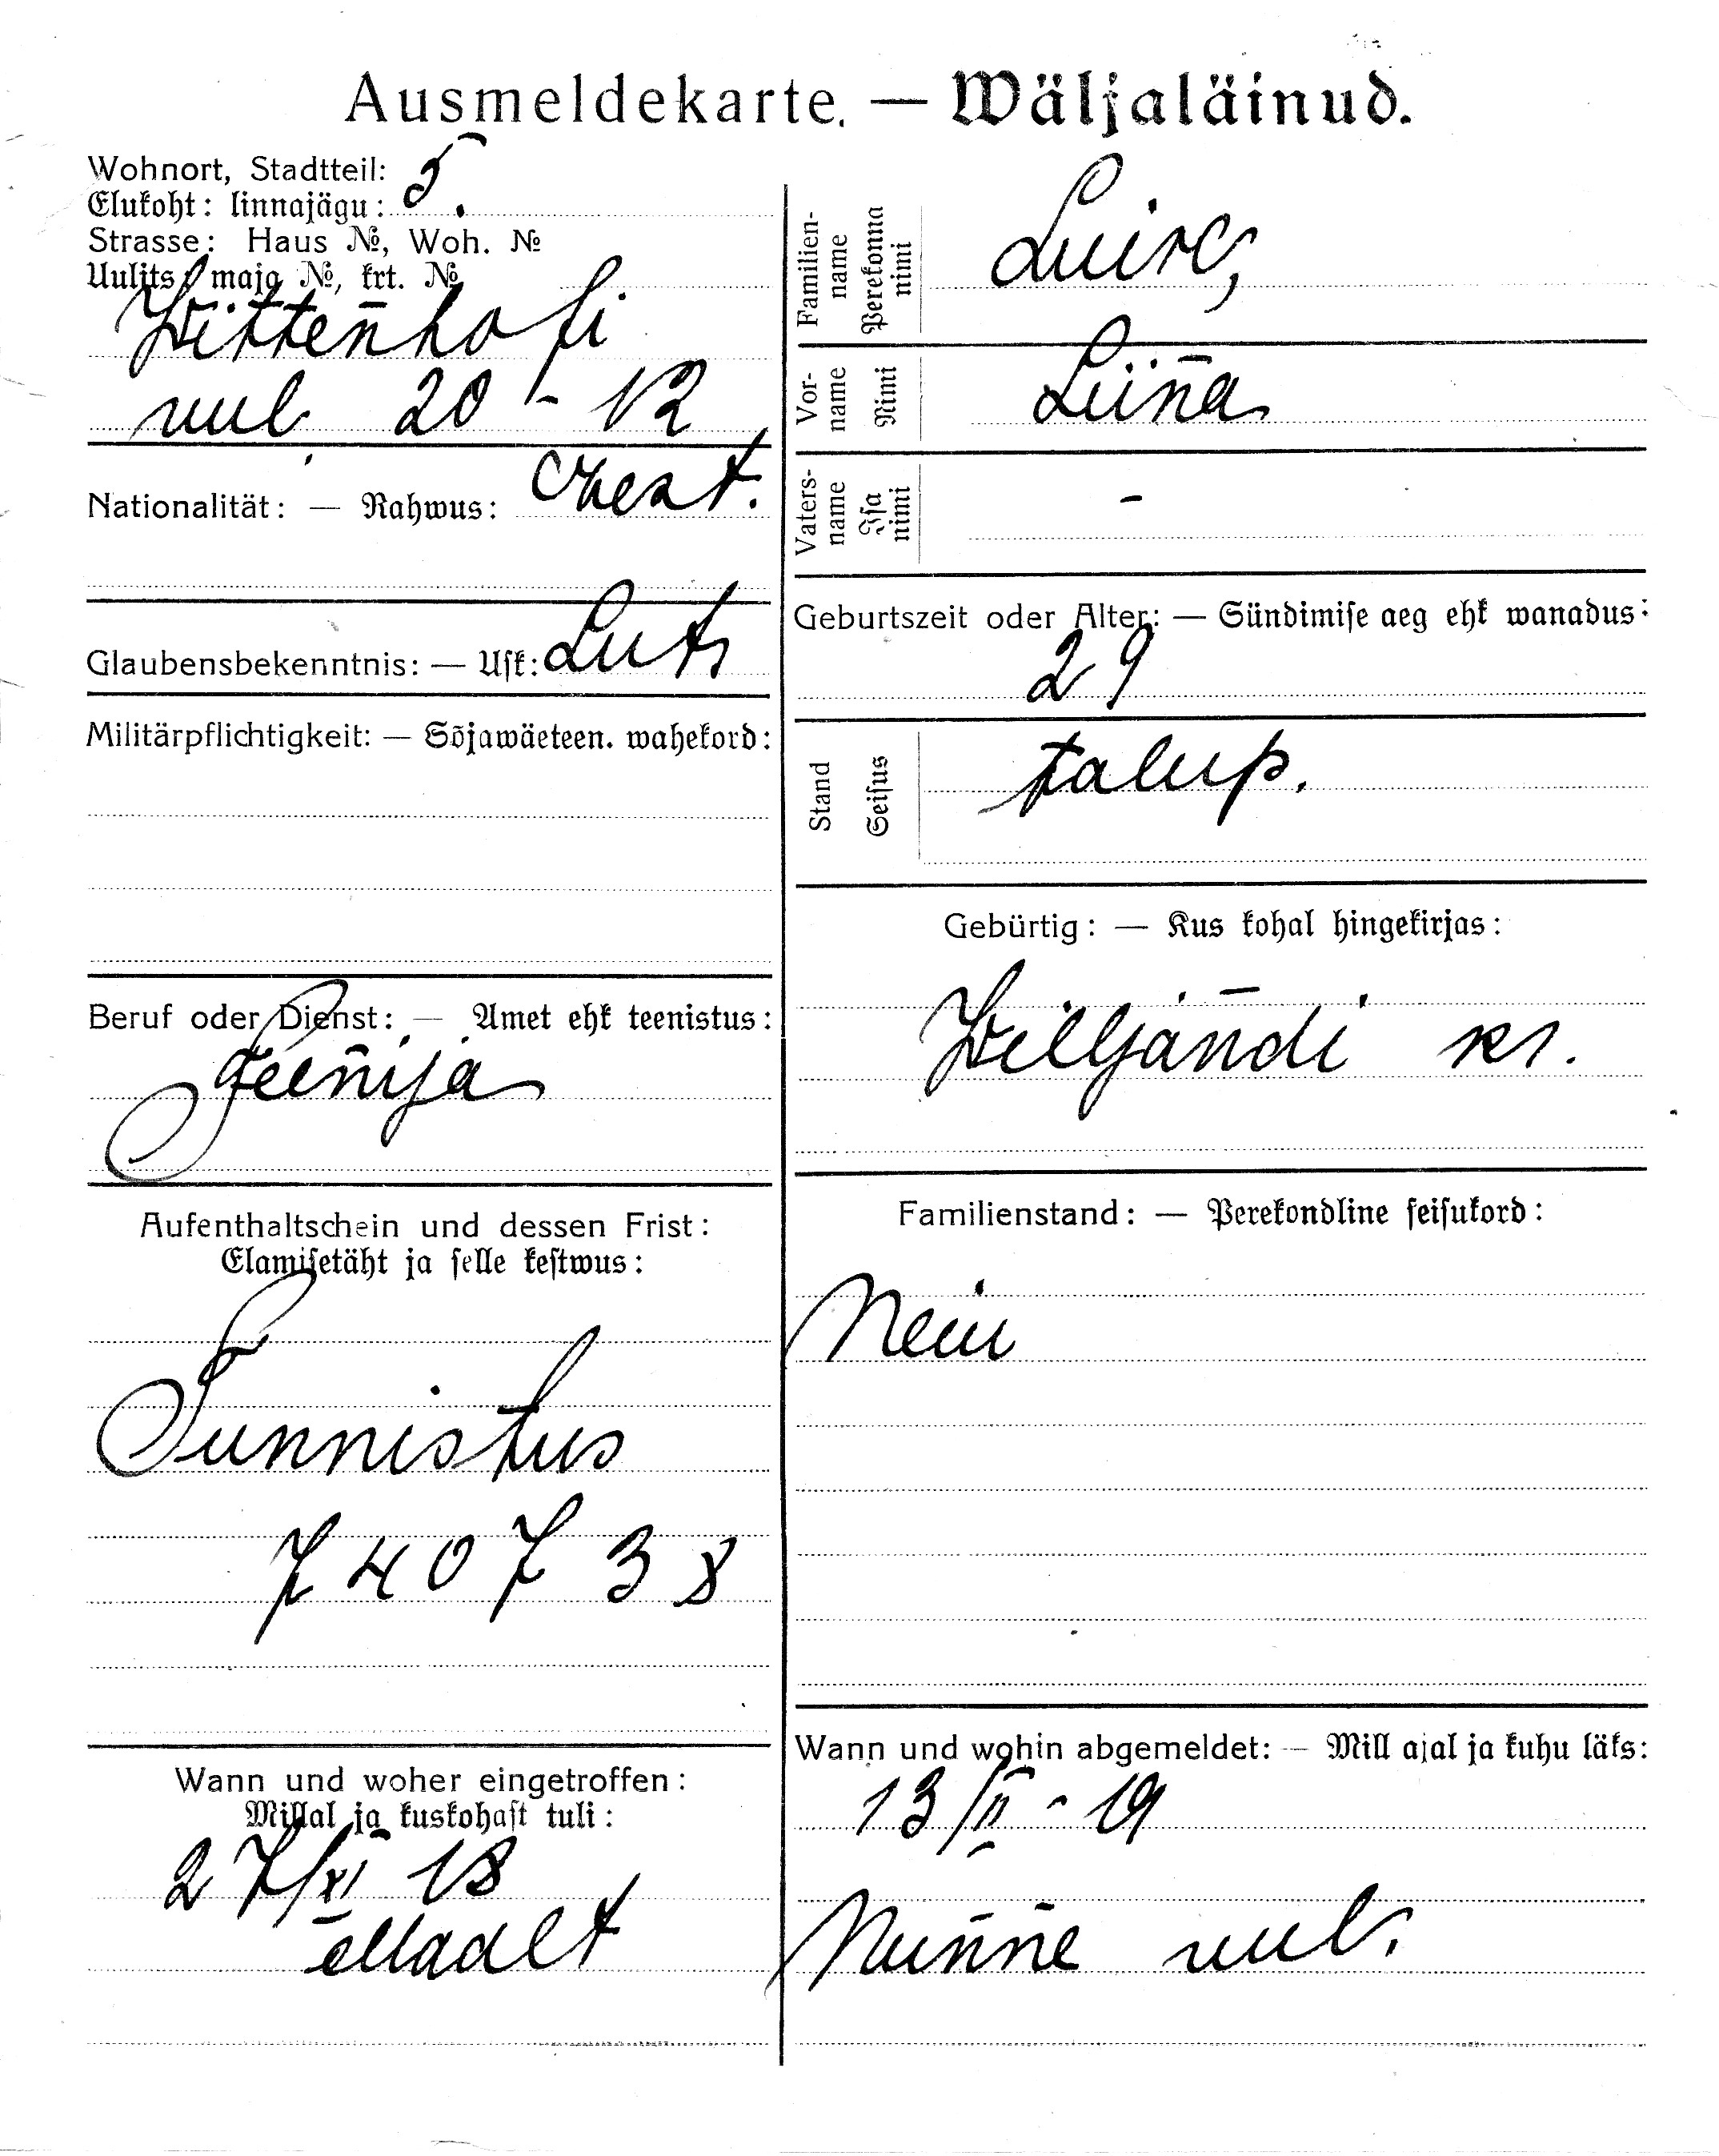 Ausmeldekarte. — Wäljaläinud.
Wohnort, Stadtteil: 5.
Elukoht: linnajägu:
Strasse: Haus №, Woh. №
Uulits, maja №, krt. №
Wittenhofi
uul 20 - 12
Nationalität: — Rahwus: eest.
Glaubensbekenntnis: — Usk: Lut
Militärpflichtigkeit: — Sõjawäeteen. wahekord:
Beruf oder Dienst: — Amet ehk teenistus:
Teenija
Aufenthaltschein und dessen Frist:
Elamisetäht ja selle kestwus:
Tunnistus
740738
Wann und woher eingetroffen:
Millal ja kuskohast tuli:
27/XI 18
Maalt
Familien-
name
Perekonna
nimi
Luik,
Vor-
name
Nimi
Liina
Vaters-
name
Isa
nimi
-
Geburtszeit oder Alter: — Sündimise aeg ehk wanadus:
29
Stand
Seisus
talup.
Gebürtig: — Kus kohal hingekirjas:
Wiljandi kr.
Familienstand: — Perekondline seisukord:
Neiu
Wann und wohin abgemeldet: — Mill ajal ja kuhu läks:
13/II - 19
Nunne uul.